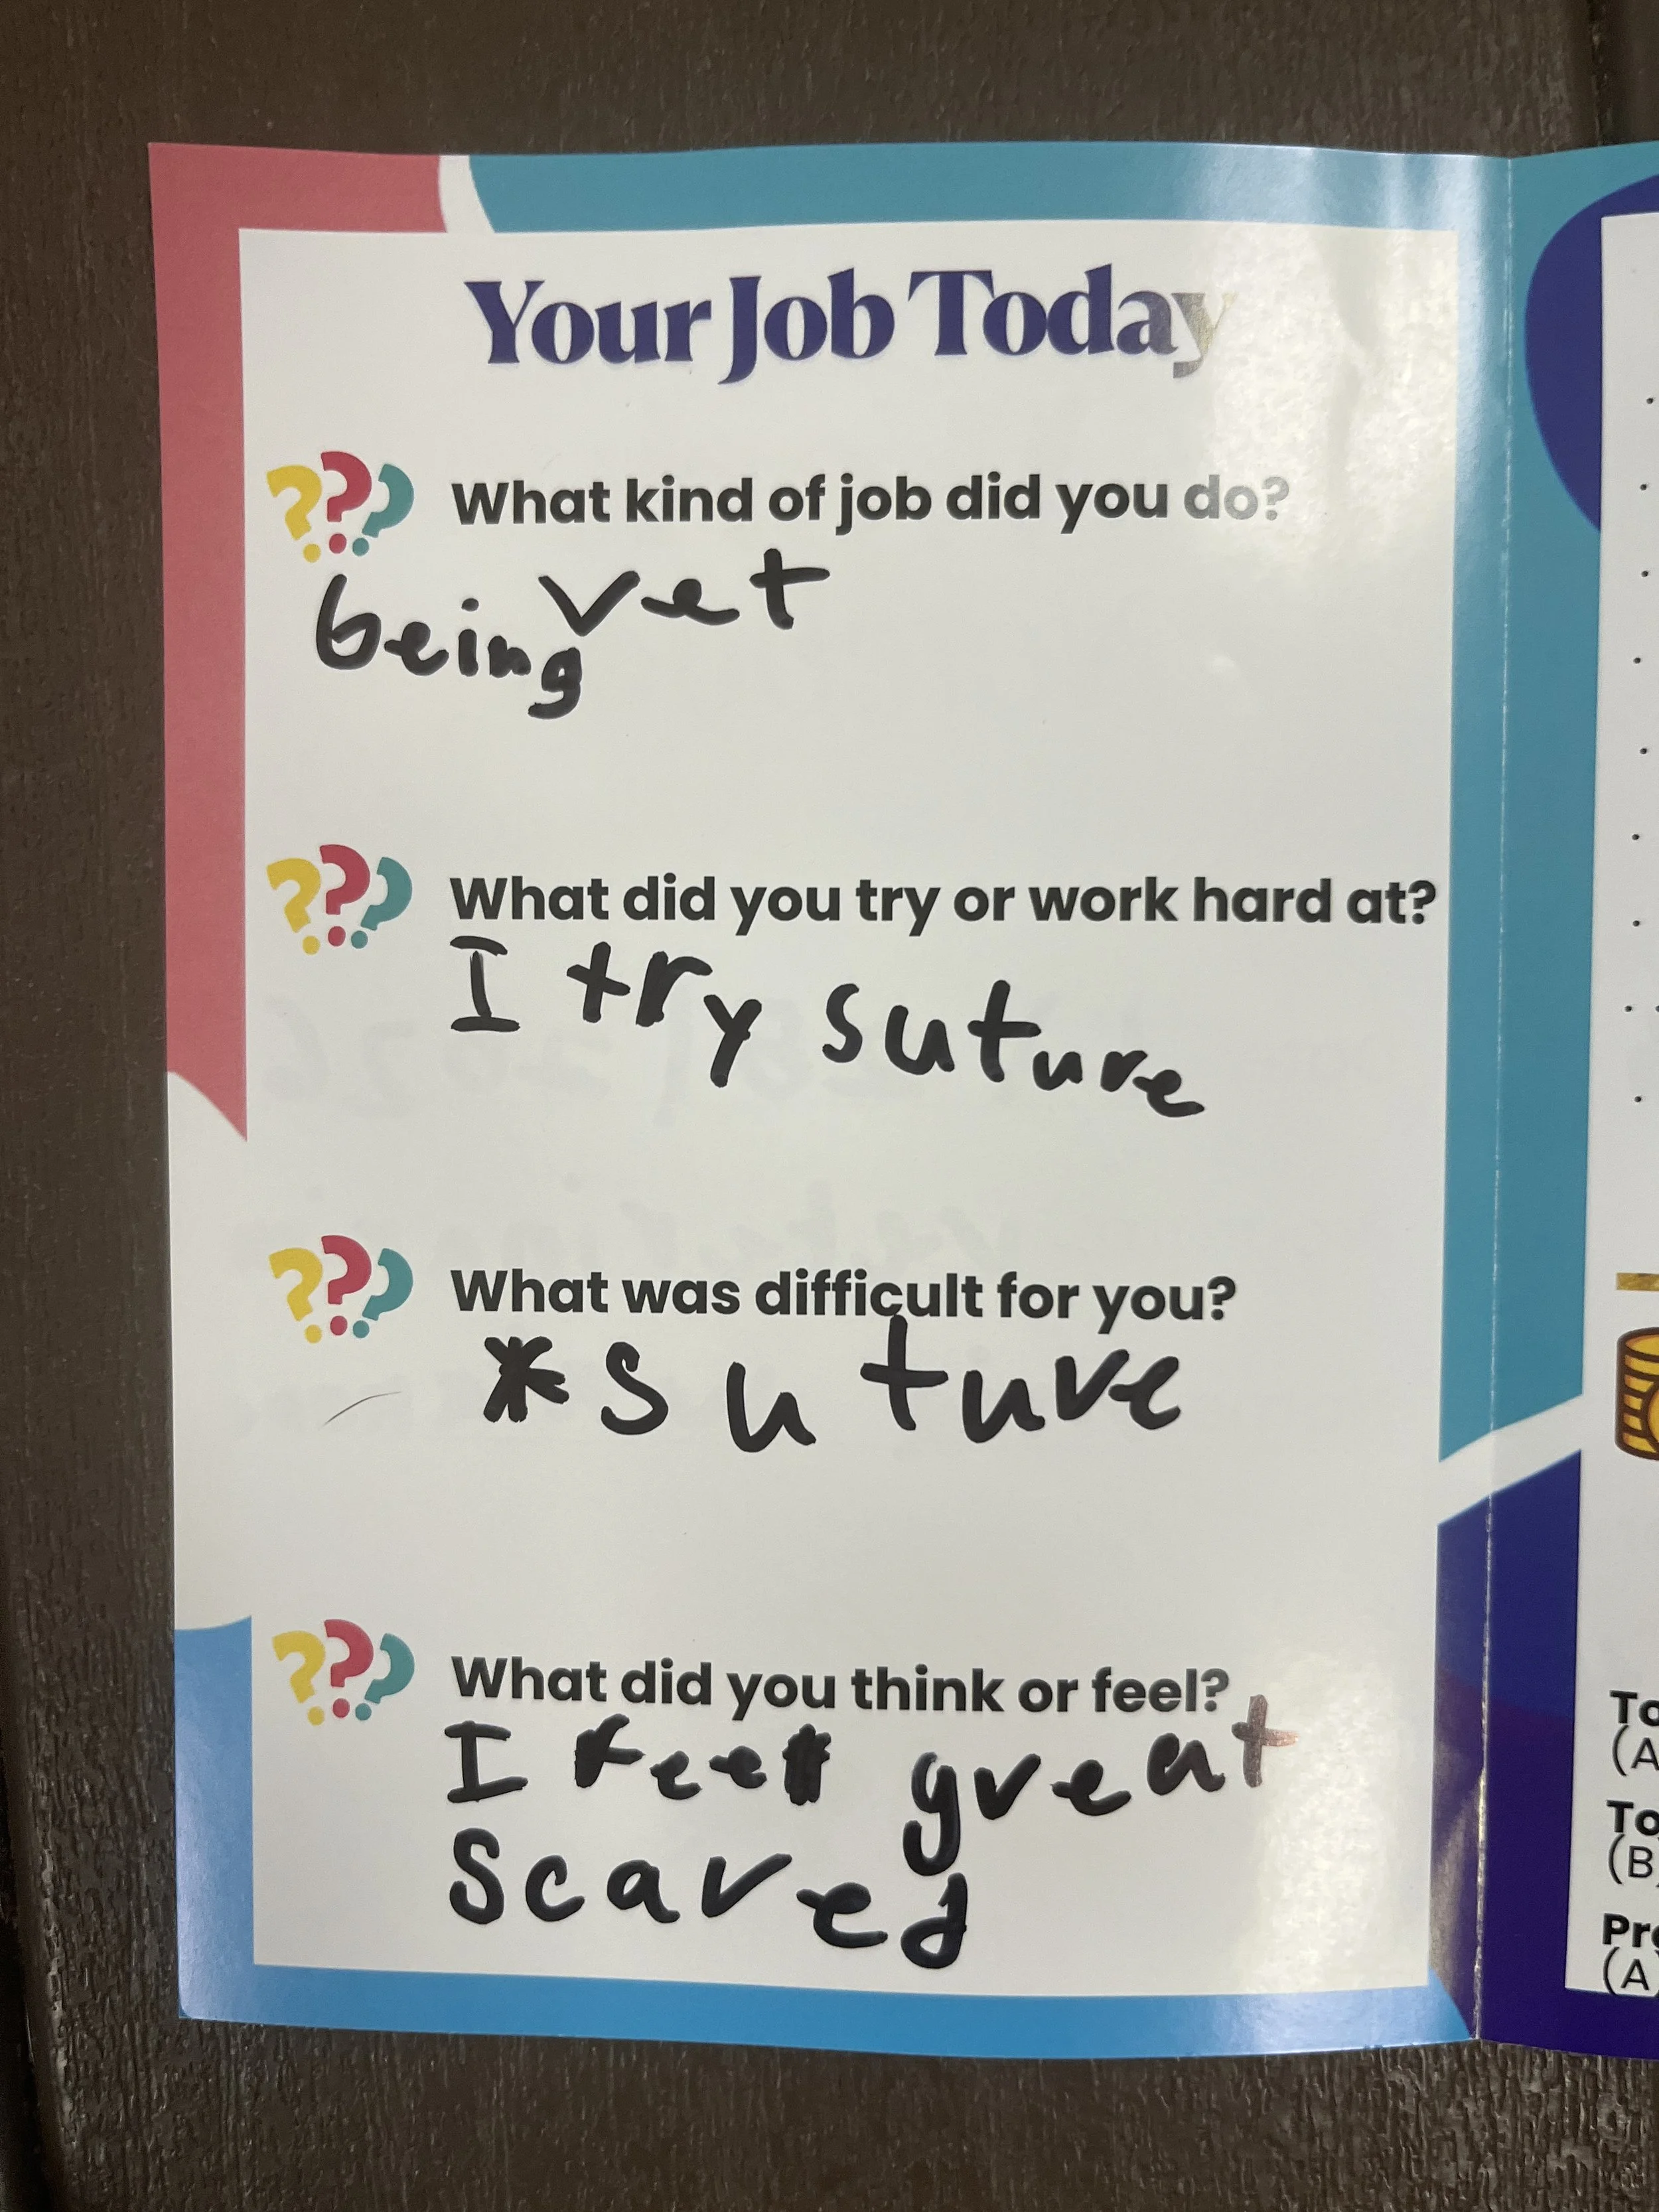 Your Job Today
What kind of job did you do?
being vet
What did you try or work hard at?
I try suture
What was difficult for you?
*suture
What did you think or feel?
I feel great
scared
To
(A
To
(B
Pre
(A